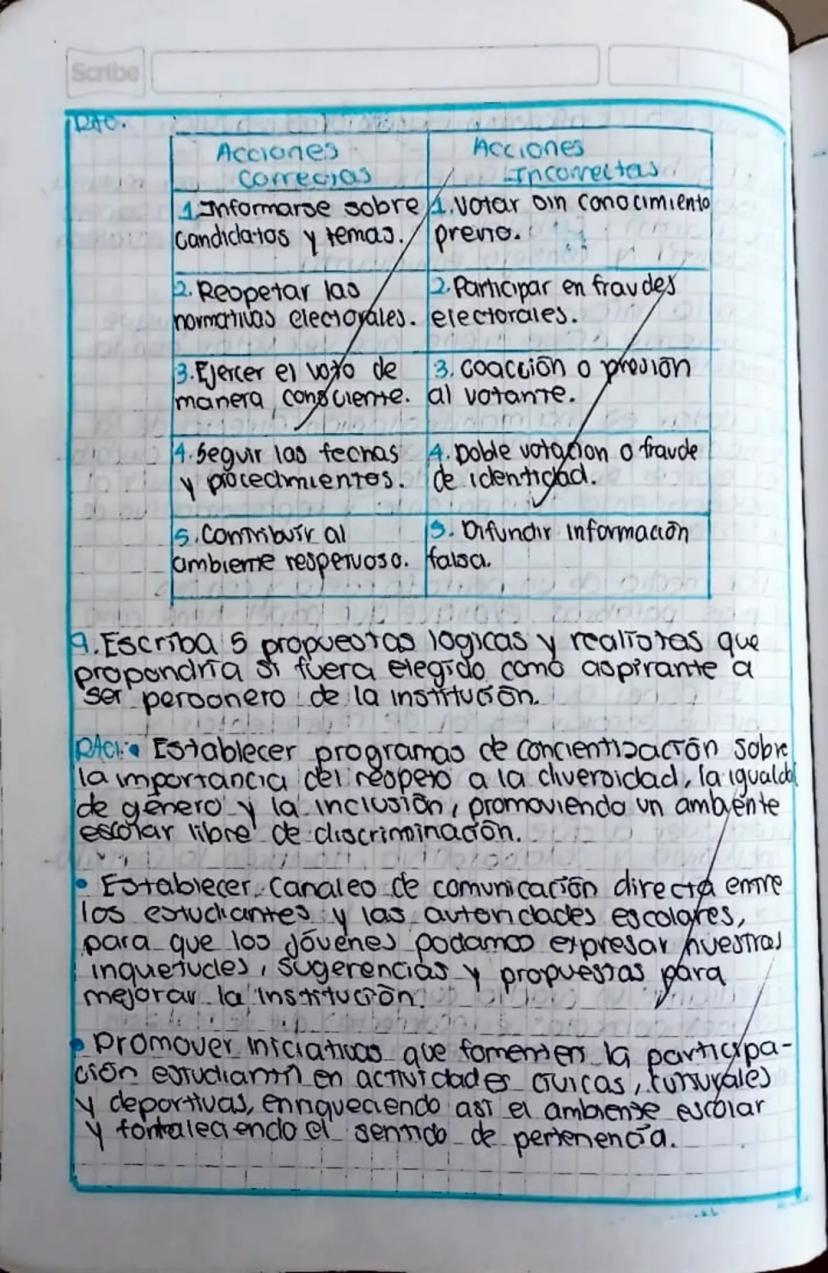 Scribe
Rta.
Acciones Correctas
Acciones Incorrectas
1. Informarse sobre candidatos y temas.
1. Votar sin conocimiento previo.
2. Respetar las normativas electorales.
2. Participar en fraudes electorales.
3. Ejercer el voto de manera consciente.
3. Coacción o presión al votante.
4. Seguir las fechas y procedimientos.
4. Doble votacion o fraude de identidad.
5. Contribuir al ambiente respetuoso.
5. Difundir información falsa.
9. Escriba 5 propuestas logicas y realistas que
propondría si fuera elegido como aspirante a
ser personero de la institución.
• Establecer programas de concientización sobre
la importancia del respeto a la diversidad, la igualdad
de género y la inclusión, promoviendo un ambiente
escolar libre de discriminación.
• Establecer canales de comunicación directa entre
los estudiantes y las autoridades escolares,
para que los jóvenes podamos expresar nuestras
inquietudes, sugerencias y propuestas para
mejorar la institución.
• Promover iniciativas que fomenten la participa-
ción estudiantil en actividades cívicas, culturales
y deportivas, enriqueciendo así el ambiente escolar
y fortaleciendo el sentido de pertenencia.